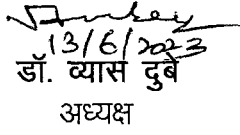 13/6/2023
डॉ. व्यास दुबे
अध्यक्ष